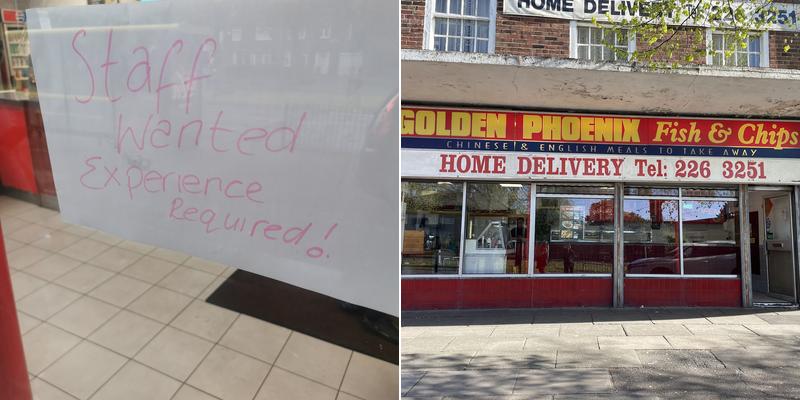 Staff
Wanted
Experience
Required!
HOME DELIVERY Tel: 226 3251
GOLDEN PHOENIX Fish & Chips
CHINESE & ENGLISH MEALS TO TAKE AWAY
HOME DELIVERY Tel: 226 3251